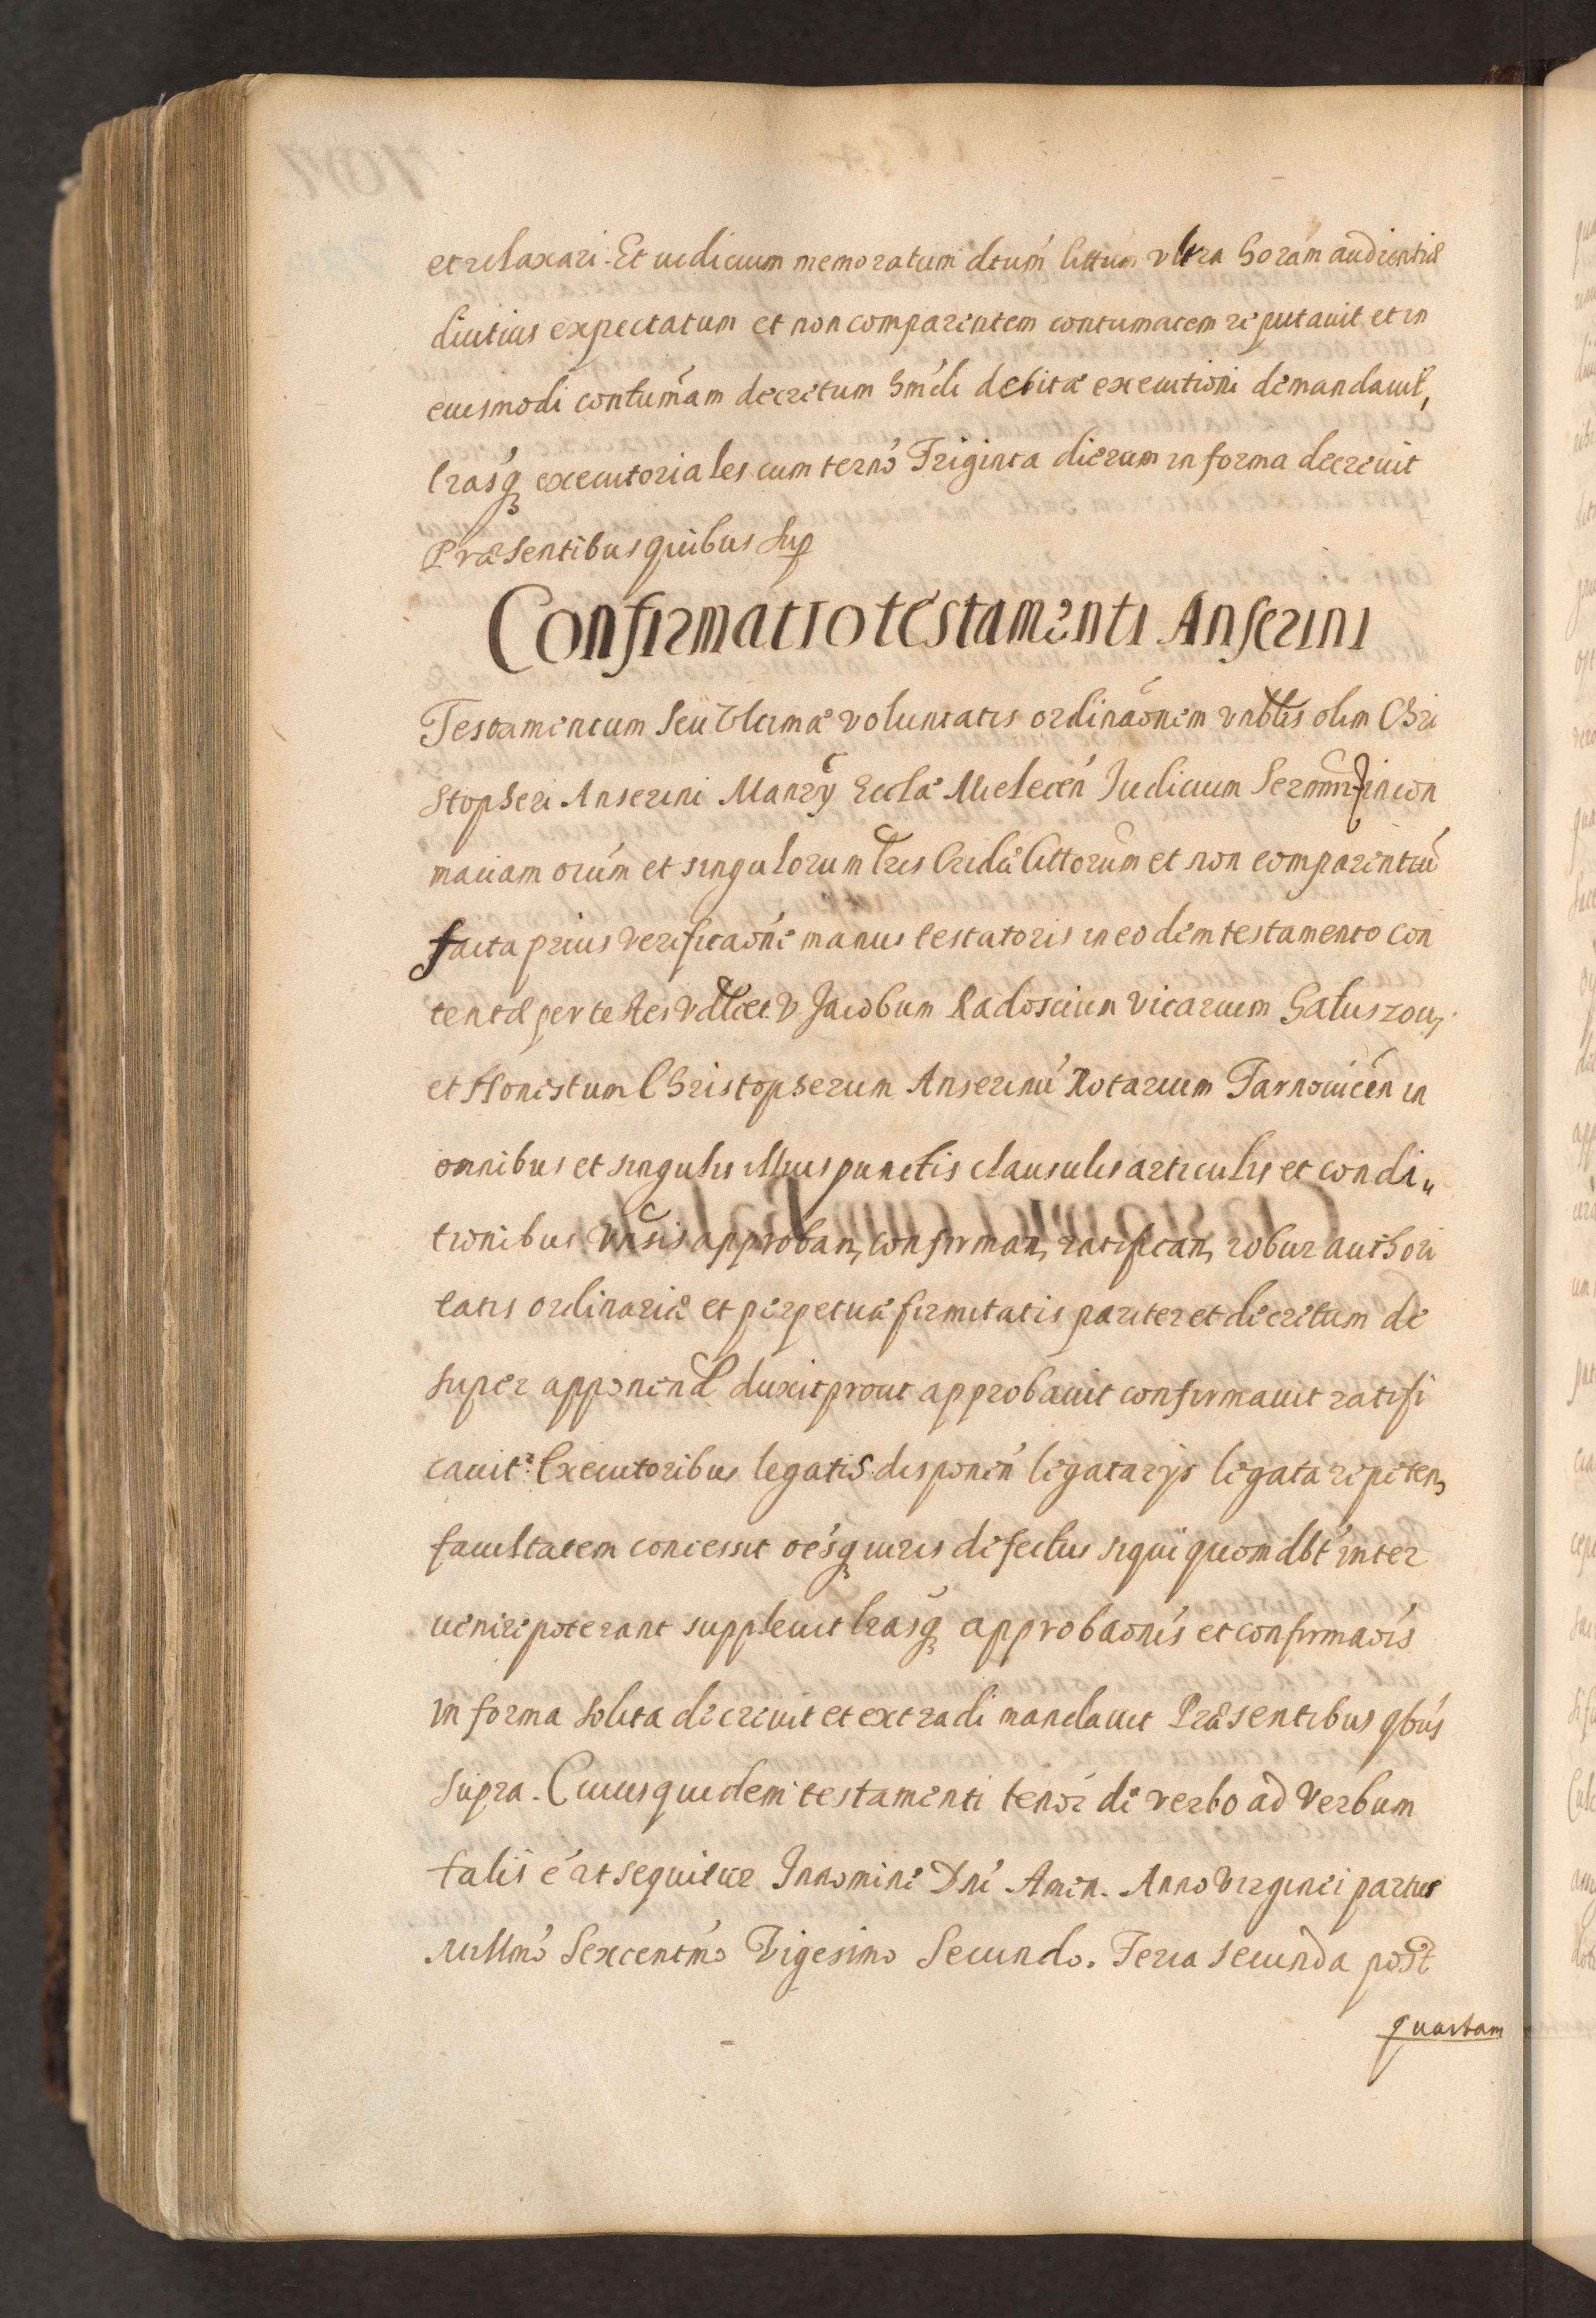 et relaxari. Et iudicium memoratum dtum cittum ultra horam audientiæ
diutius expectatum et non comparentem contumacem reputauit et in
eiusmodi contumam decretum hmdi debitæ executioni demandauit,
lrasq executoriales cum terno Triginta dierum in forma decreuit
Præsentibus quibus sup
Confirmatio testamenti Anserini
Testamentum seu Vltimæ voluntatis ordinaonem vnblis olim Chri
stopheri Anserini Manrÿ Eccłæ Mielecen Iudicium in con
maciam oium et singulorum cittorum et non comparentiu
facta prius verificaone manus testatoris in eodem testamento con
tentæ per testes V Jacobum Radoscium Vicarium Galuszou,
et Honestum Christopherum Anserinu Notarium Tarnouicen in
omnibus et singulis illius punctis clausulis articulis et condi„
tionibus approban, confirman, ratifican, robur authori
tatis ordinariæ et perpetuæ firmitatis pariter et decretum de
super apponend duxit prout approbauit confirmauit ratifi
cauit: Executoribus legatis disponen legatarÿs legata repeten,
facultatem concessit oesq iuris defectus siqui quomdbt inter
uenire poterant suppleuit lrasq approbaonis et confirmaois
in forma solita decreuit et extradi mandauit Præsentibus qbus
supra. Cuius quidem testamenti tenor de verbo ad verbum
talis e et sequitur In nomine Dni Amen. Anno Virginei partus
Millmo Sexcentmo Vigesimo Secundo. Feria secunda post
quartam